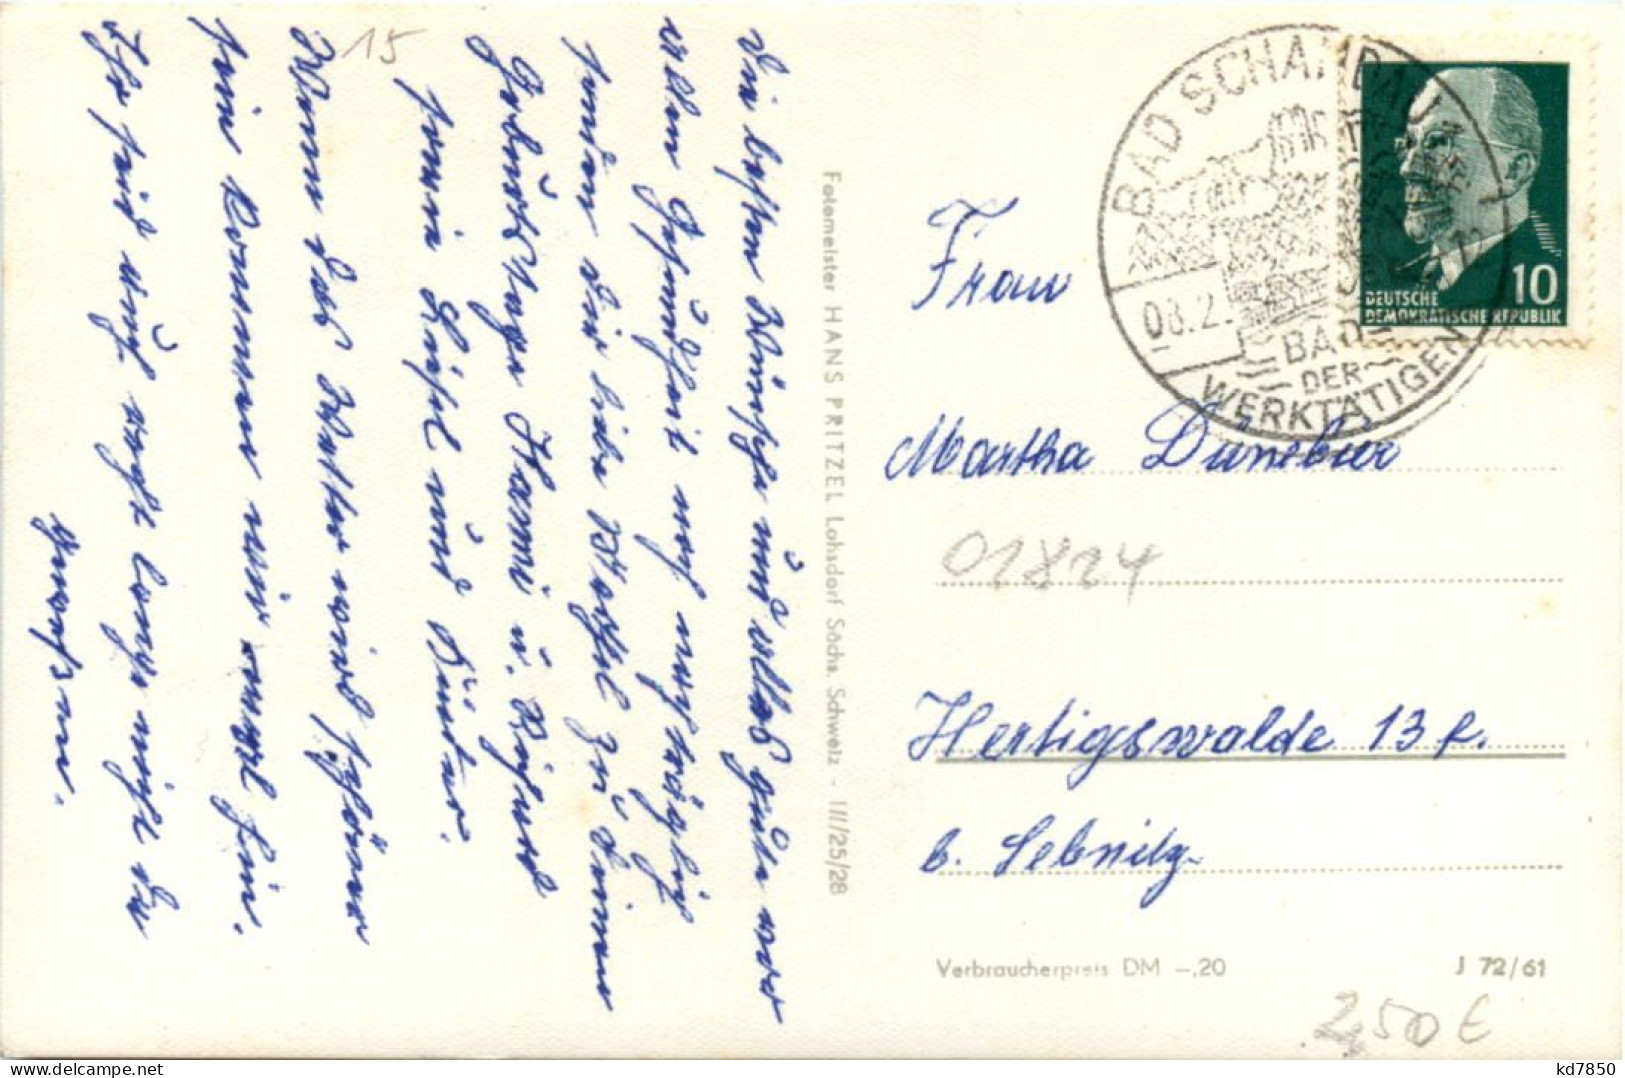 Die besten Wünsche und alles gute vor
allem Gesundheit noch nachträglich
senden dir liebe Mattel zu deinem
Geburtstage Hanni u. Richard
sowie Liesel und Dieter.
Wenn das Wetter wird schöner
sein kommen wir mal hin.
Ihr seid auch recht lange nicht da
gewesen.
15
Fotomeister HANS PRITZEL Lohsdorf Sächs. Schweiz - III/25/28
BAD SCHANDAU
08.2.
BAD
DER
WERKTÄTIGEN
10
DEUTSCHE
DEMOKRATISCHE REPUBLIK
Frau
Martha Dünebier
01824
Hertigswalde 13 f.
b. Sebnitz
Verbraucherpreis DM -,20
J 72/61
2,50 €
kd7850